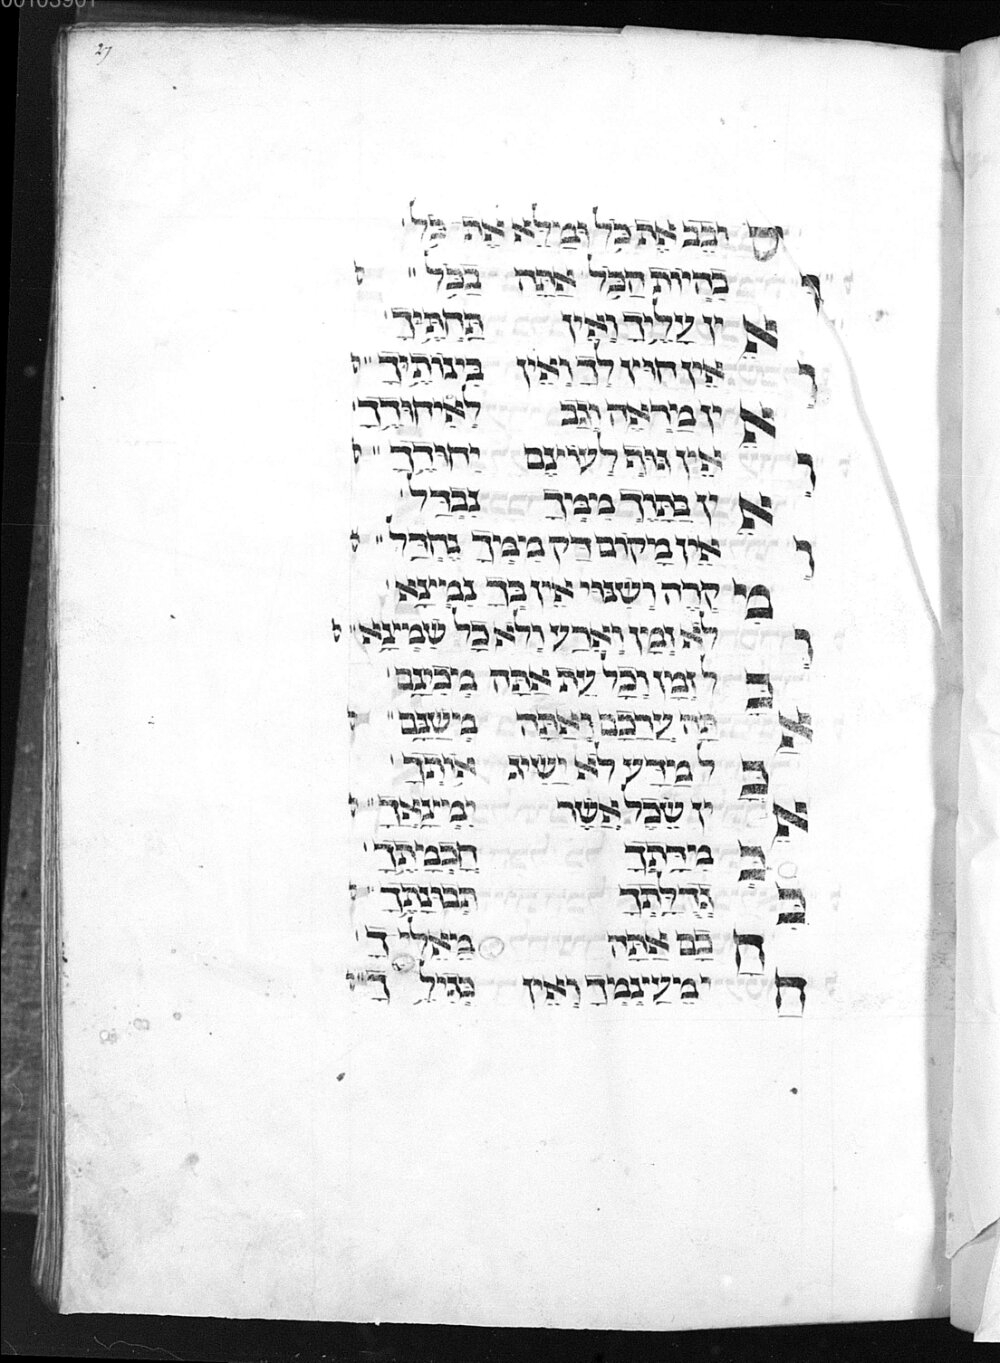 27
שובב את כל ומלא את כל
ובהיות הכל אתה בכל
אין עליך ואין תחתיך
ואין חוץ לך ואין בינותיך
אין מראה וגב לאיחודך
ואין גוף לעוצם יחודך
אין בתוך ממך נבדל
ואין מקום דק ממך נחדל
מקרה ושנוי אין בך נמיצא
ולא זמן וארע ולא כל שמיצא
כל זמן וכל עת אתה מכינם
אתה ערכם ואתה משנם
כל מדע לא ישיג אותך
אין שכל אשר ימיצאך
כמדתך חכמתך
כגדלתך תבונתך
חכם אתה מאליך
חי מעינמך ואין כגילך